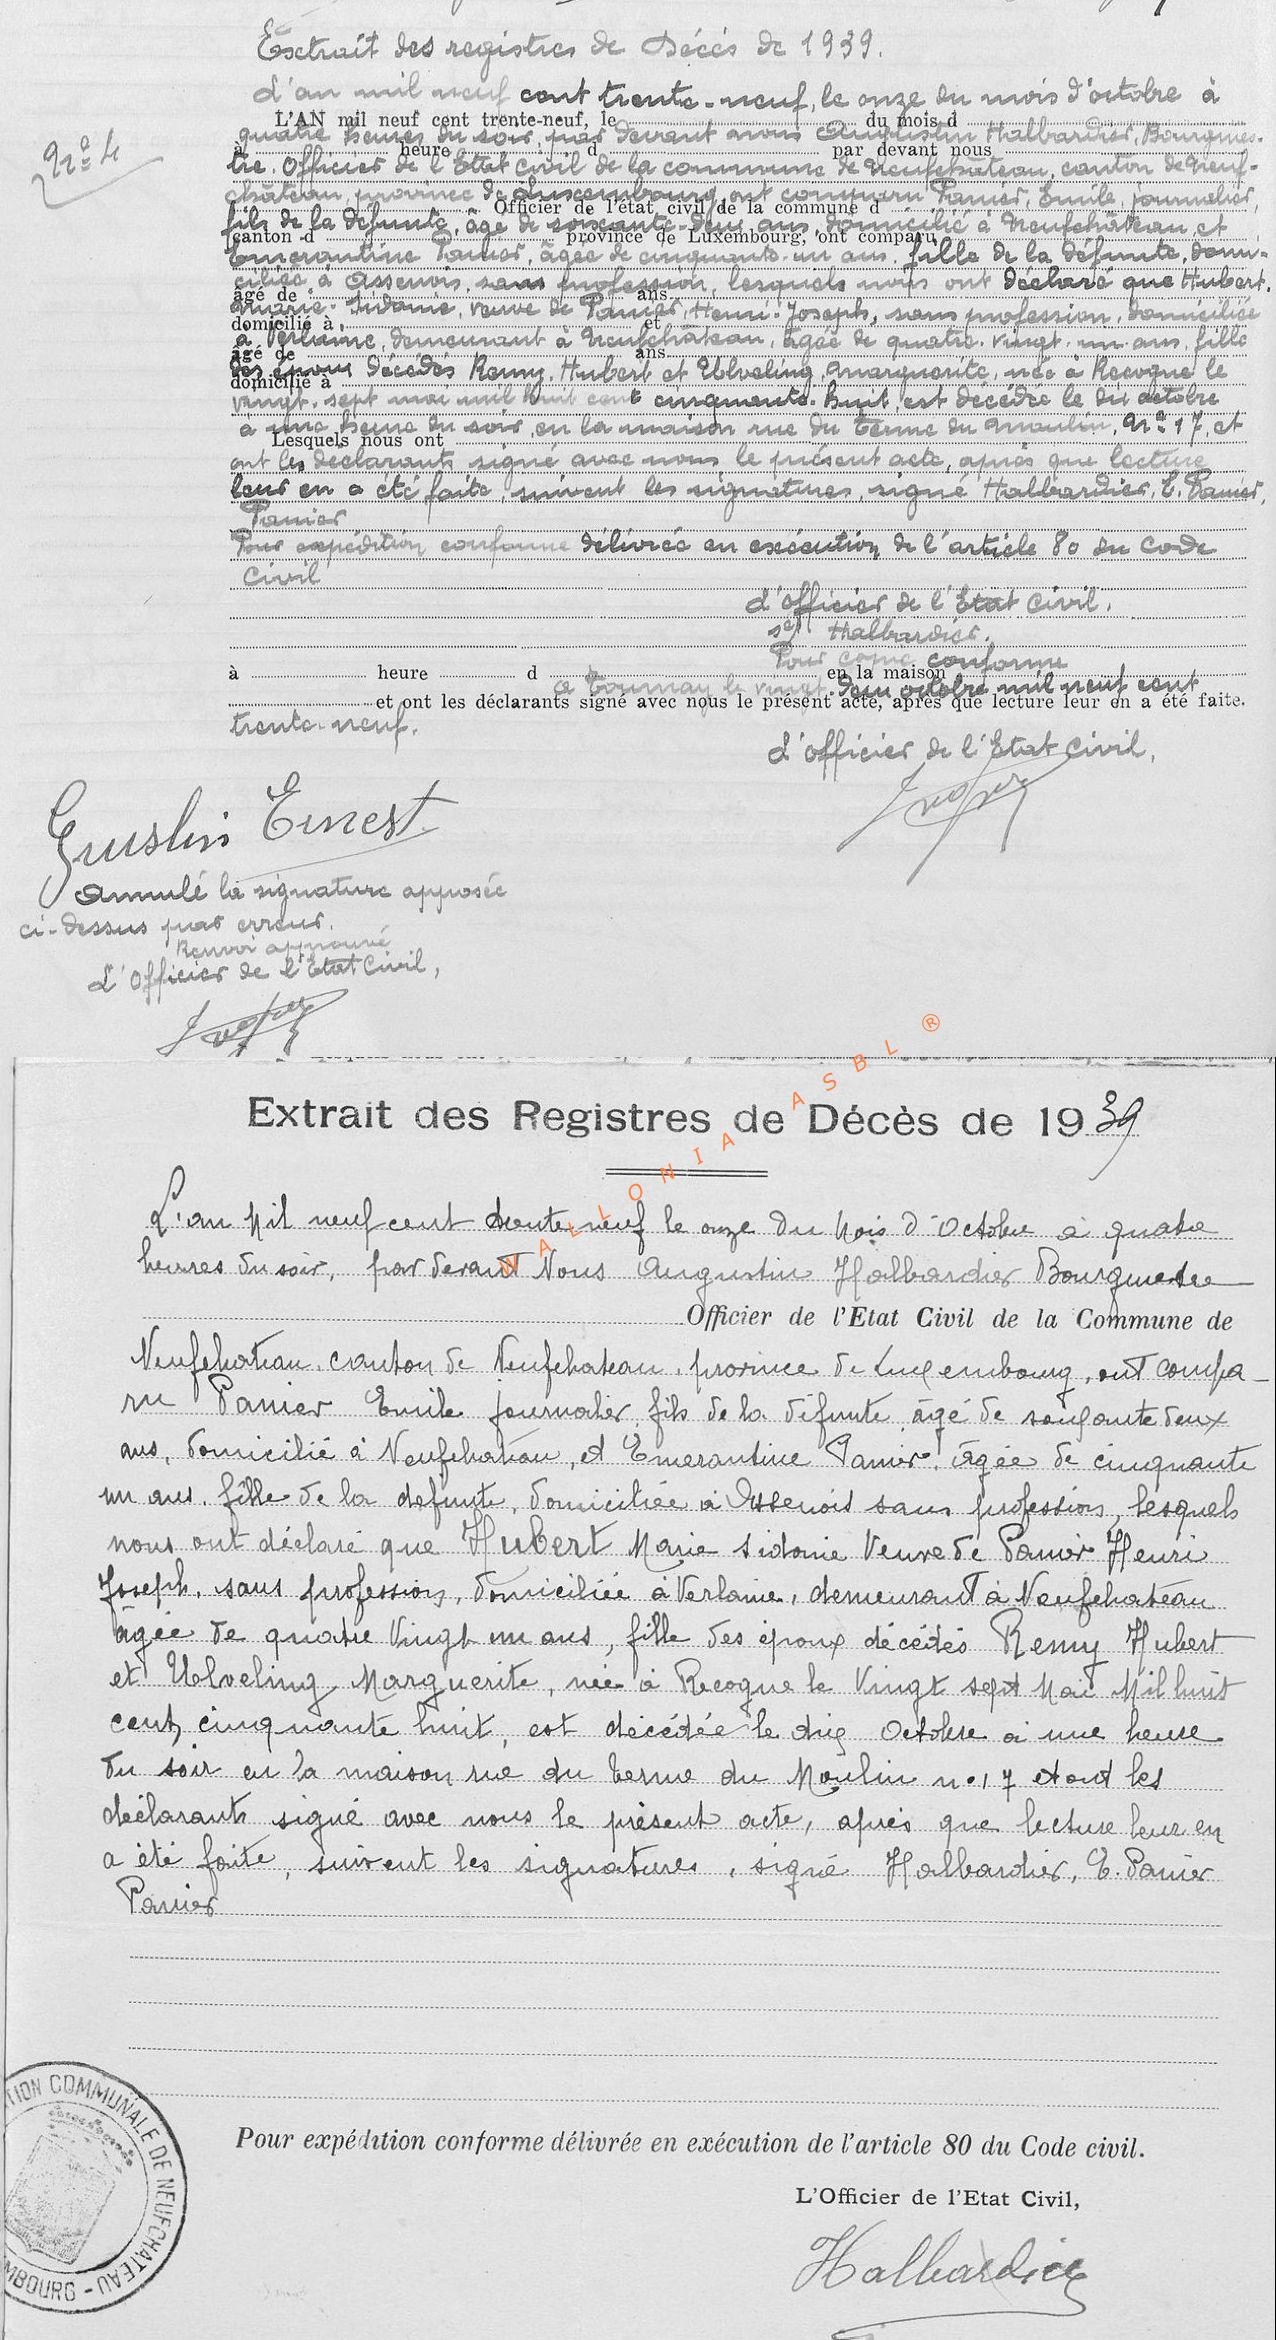 Extrait des registres de Décès de 1939.
L'an mil neuf cent trente-neuf, le onze du mois d'octobre à
L'AN mil neuf cent trente-neuf, le du mois d
quatre heures du soir, par devant nous Augustin Halbardier, Bourgmes-
à heure d par devant nous
tre. Officier de l'Etat Civil de la commune de Neufchâteau, canton de Neuf-
château, province de Luxembourg, ont comparu Panier, Emile, journalier,
Officier de l'état civil de la commune d
fils de la défunte, âgé de soixante-deux ans, domicilié à Neufchâteau, et
canton d province de Luxembourg, ont comparu
Emerantine Panier, âgée de cinquante-un ans, fille de la défunte, domi-
ciliée à Assenois, sans profession, lesquels nous ont déclaré que Hubert,
âgé de ans
Marie-Sidonie, veuve de Panier, Henri-Joseph, sans profession, domiciliée
domicilié à et
à Verlaine, demeurant à Neufchâteau, âgée de quatre-vingt-un ans, fille
âgé de ans
des époux décédés Remy, Hubert et Ulveling, Marguerite, née à Recogne le
domicilié à
vingt-sept mai mil huit cent cinquante-huit, est décédée le dix octobre
à une heure du soir, en la maison rue du Terme du Moulin, N° 17, et
Lesquels nous ont
ont les déclarants signé avec nous le présent acte, après que lecture
leur en a été faite, suivent les signatures, signé Halbardier, E. Panier,
Panier
Pour expédition conforme délivrée en exécution de l'article 80 du Code
Civil
L'officier de l'Etat Civil,
sé/ Halbardier.
Pour copie conforme
à heure d en la maison
à Tournay le vingt-deux octobre mil neuf cent
et ont les déclarants signé avec nous le présent acte, après que lecture leur en a été faite.
trente-neuf.
L'officier de l'Etat Civil,
N° 4
Guslin Ernest
Annulé la signature apposée
ci-dessus par erreur.
Renvoi approuvé
L'Officier de l'Etat Civil,
WALLONIA ASBL ®
Extrait des Registres de Décès de 1939
L'an Mil neuf cent trente neuf le onze du Mois d'Octobre à quatre
heures du soir, par devant Nous Augustin Halbardier Bourgmestre
Officier de l'Etat Civil de la Commune de
Neufchateau, canton de Neufchateau, province de Luxembourg, ont compa-
ru Panier Emile journalier, fils de la défunte âgé de soixante deux
ans, domicilié à Neufchateau, et Emerantine Panier, âgée de cinquante
un ans, fille de la defunte, domiciliée à Assenois sans profession, lesquels
nous ont déclaré que Hubert Marie Sidonie Veuve de Panier Henri
Joseph, sans profession, domiciliée à Verlaine, demeurant à Neufchateau
âgée de quatre Vingt un ans, fille des époux décédés Remy Hubert
et Ulveling Marguerite, née à Recogne le Vingt sept Mai Mil huit
cent cinquante huit, est décédée le dix Octobre à une heure
du soir en la maison rue du Terme du Moulin n° 17 et ont les
déclarants signé avec nous le présent acte, après que lecture leur en
a été faite, suivent les signatures, signé Halbardier, E. Panier
Panier
Pour expédition conforme délivrée en exécution de l'article 80 du Code civil.
L'Officier de l'Etat Civil,
Halbardier
TION COMMUNALE DE NEUFCHATEAU - MBOURG